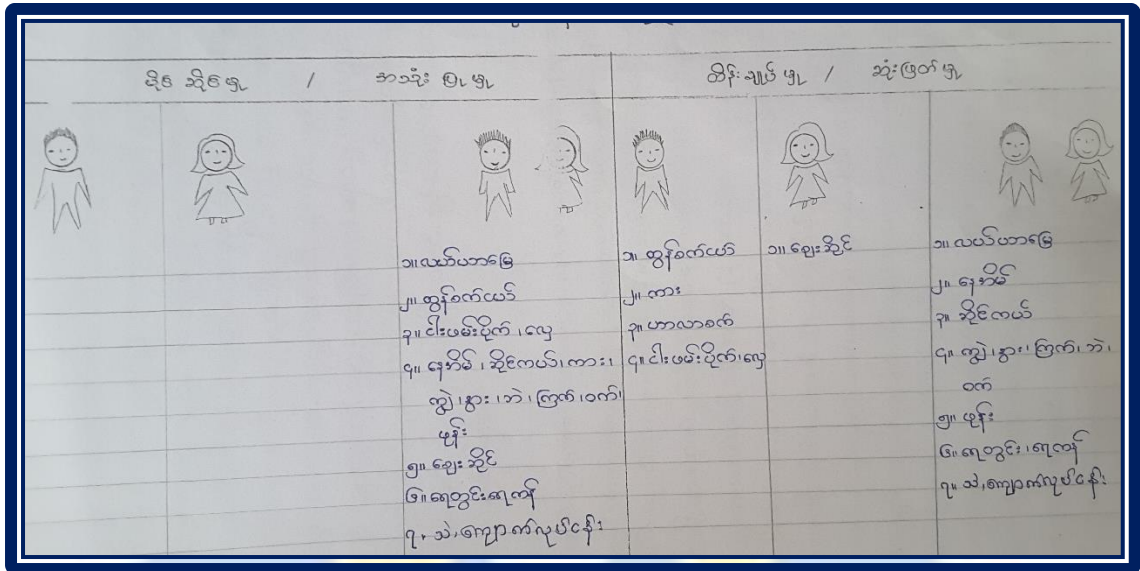 ပိုင်ဆိုင်မှု / အသုံးပြုမှု
ထိန်းချုပ်မှု / ဆုံးဖြတ်မှု
၁။ လယ်ယာမြေ
၂။ ထွန်စက်ငယ်
၃။ ငါးဖမ်းပိုက်၊လှေ
၄။ နေအိမ်၊ ဆိုင်ကယ်၊ ကား၊
ကျွဲ၊နွား၊ဘဲ၊ကြက်၊ဝက်၊
ဖုန်း
၅။ ဈေးဆိုင်
၆။ ရေတွင်း၊ရေကန်
၇။ သဲ၊ကျောက်လုပ်ငန်း
၁။ ထွန်စက်ငယ်
၂။ ကား
၃။ ဟာလာစက်
၄။ ငါးဖမ်းပိုက်၊လှေ
၁။ ဈေးဆိုင်
၁။ လယ်ယာမြေ
၂။ နေအိမ်
၃။ ဆိုင်ကယ်
၄။ ကျွဲ၊နွား၊ကြက်၊ဘဲ၊
ဝက်
၅။ ဖုန်း
၆။ ရေတွင်း၊ရေကန်
၇။ သဲ၊ကျောက်လုပ်ငန်း